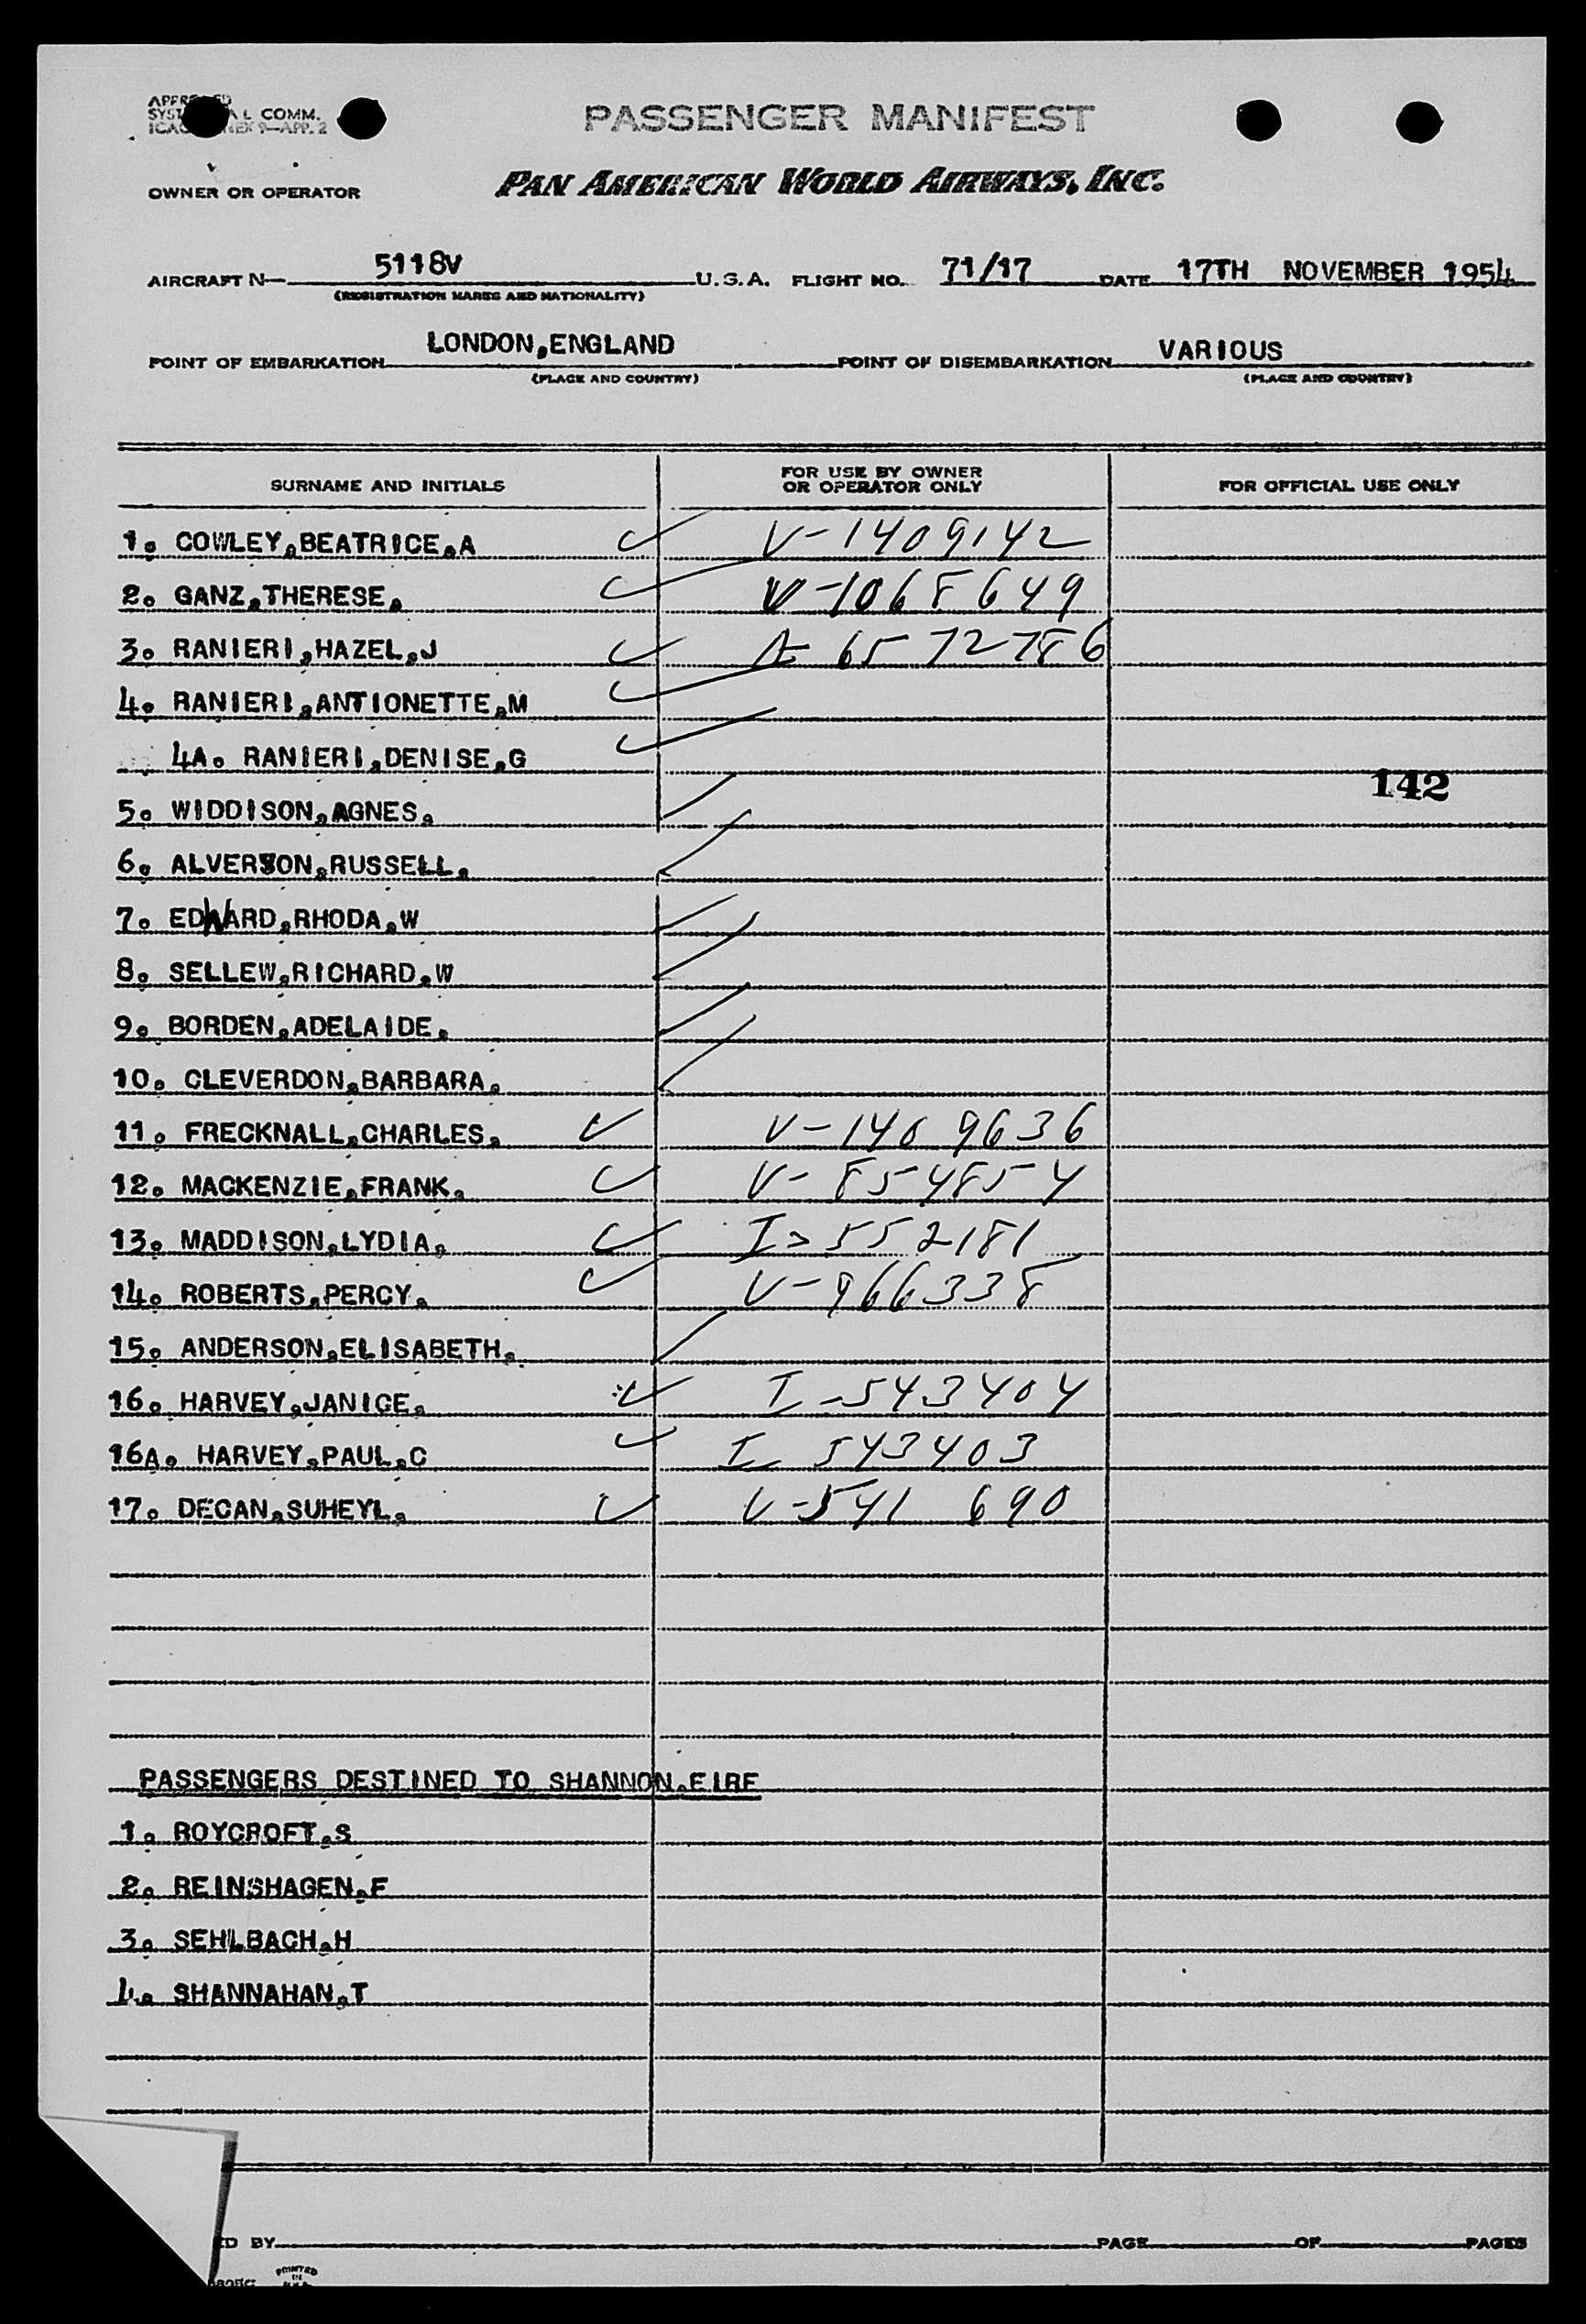 APPR ED
SYST AL COMM.
ICAO EX 9-APP. 2
PASSENGER MANIFEST
OWNER OR OPERATOR PAN AMERICAN WORLD AIRWAYS, INC.
AIRCRAFT N- 5118V U.S.A. FLIGHT NO. 71/17 DATE 17TH NOVEMBER 1954
(REGISTRATION MARKS AND NATIONALITY)
POINT OF EMBARKATION LONDON,ENGLAND POINT OF DISEMBARKATION VARIOUS
(PLACE AND COUNTRY) (PLACE AND COUNTRY)
SURNAME AND INITIALS FOR USE BY OWNER OR OPERATOR ONLY FOR OFFICIAL USE ONLY
1. COWLEY,BEATRICE,A V-1409142
2. GANZ,THERESE, V-1068649
3. RANIERI,HAZEL,J A-6572786
4. RANIERI,ANTIONETTE,M
4A. RANIERI,DENISE,G
142
5. WIDDISON,AGNES,
6. ALVERSON,RUSSELL,
7. EDWARD,RHODA,W
8. SELLEW,RICHARD,W
9. BORDEN,ADELAIDE,
10. CLEVERDON,BARBARA,
11. FRECKNALL,CHARLES, V-1409636
12. MACKENZIE,FRANK, V-854854
13. MADDISON,LYDIA, I-552181
14. ROBERTS,PERCY, V-966338
15. ANDERSON,ELISABETH,
16. HARVEY,JANICE, I-543404
16A. HARVEY,PAUL,C I-543403
17. DECAN,SUHEYL, V-541690
PASSENGERS DESTINED TO SHANNON,EIRE
1. ROYCROFT,S
2. REINSHAGEN,F
3. SEHLBACH,H
4. SHANNAHAN,T
ED BY PAGE OF PAGES
PRINTED IN